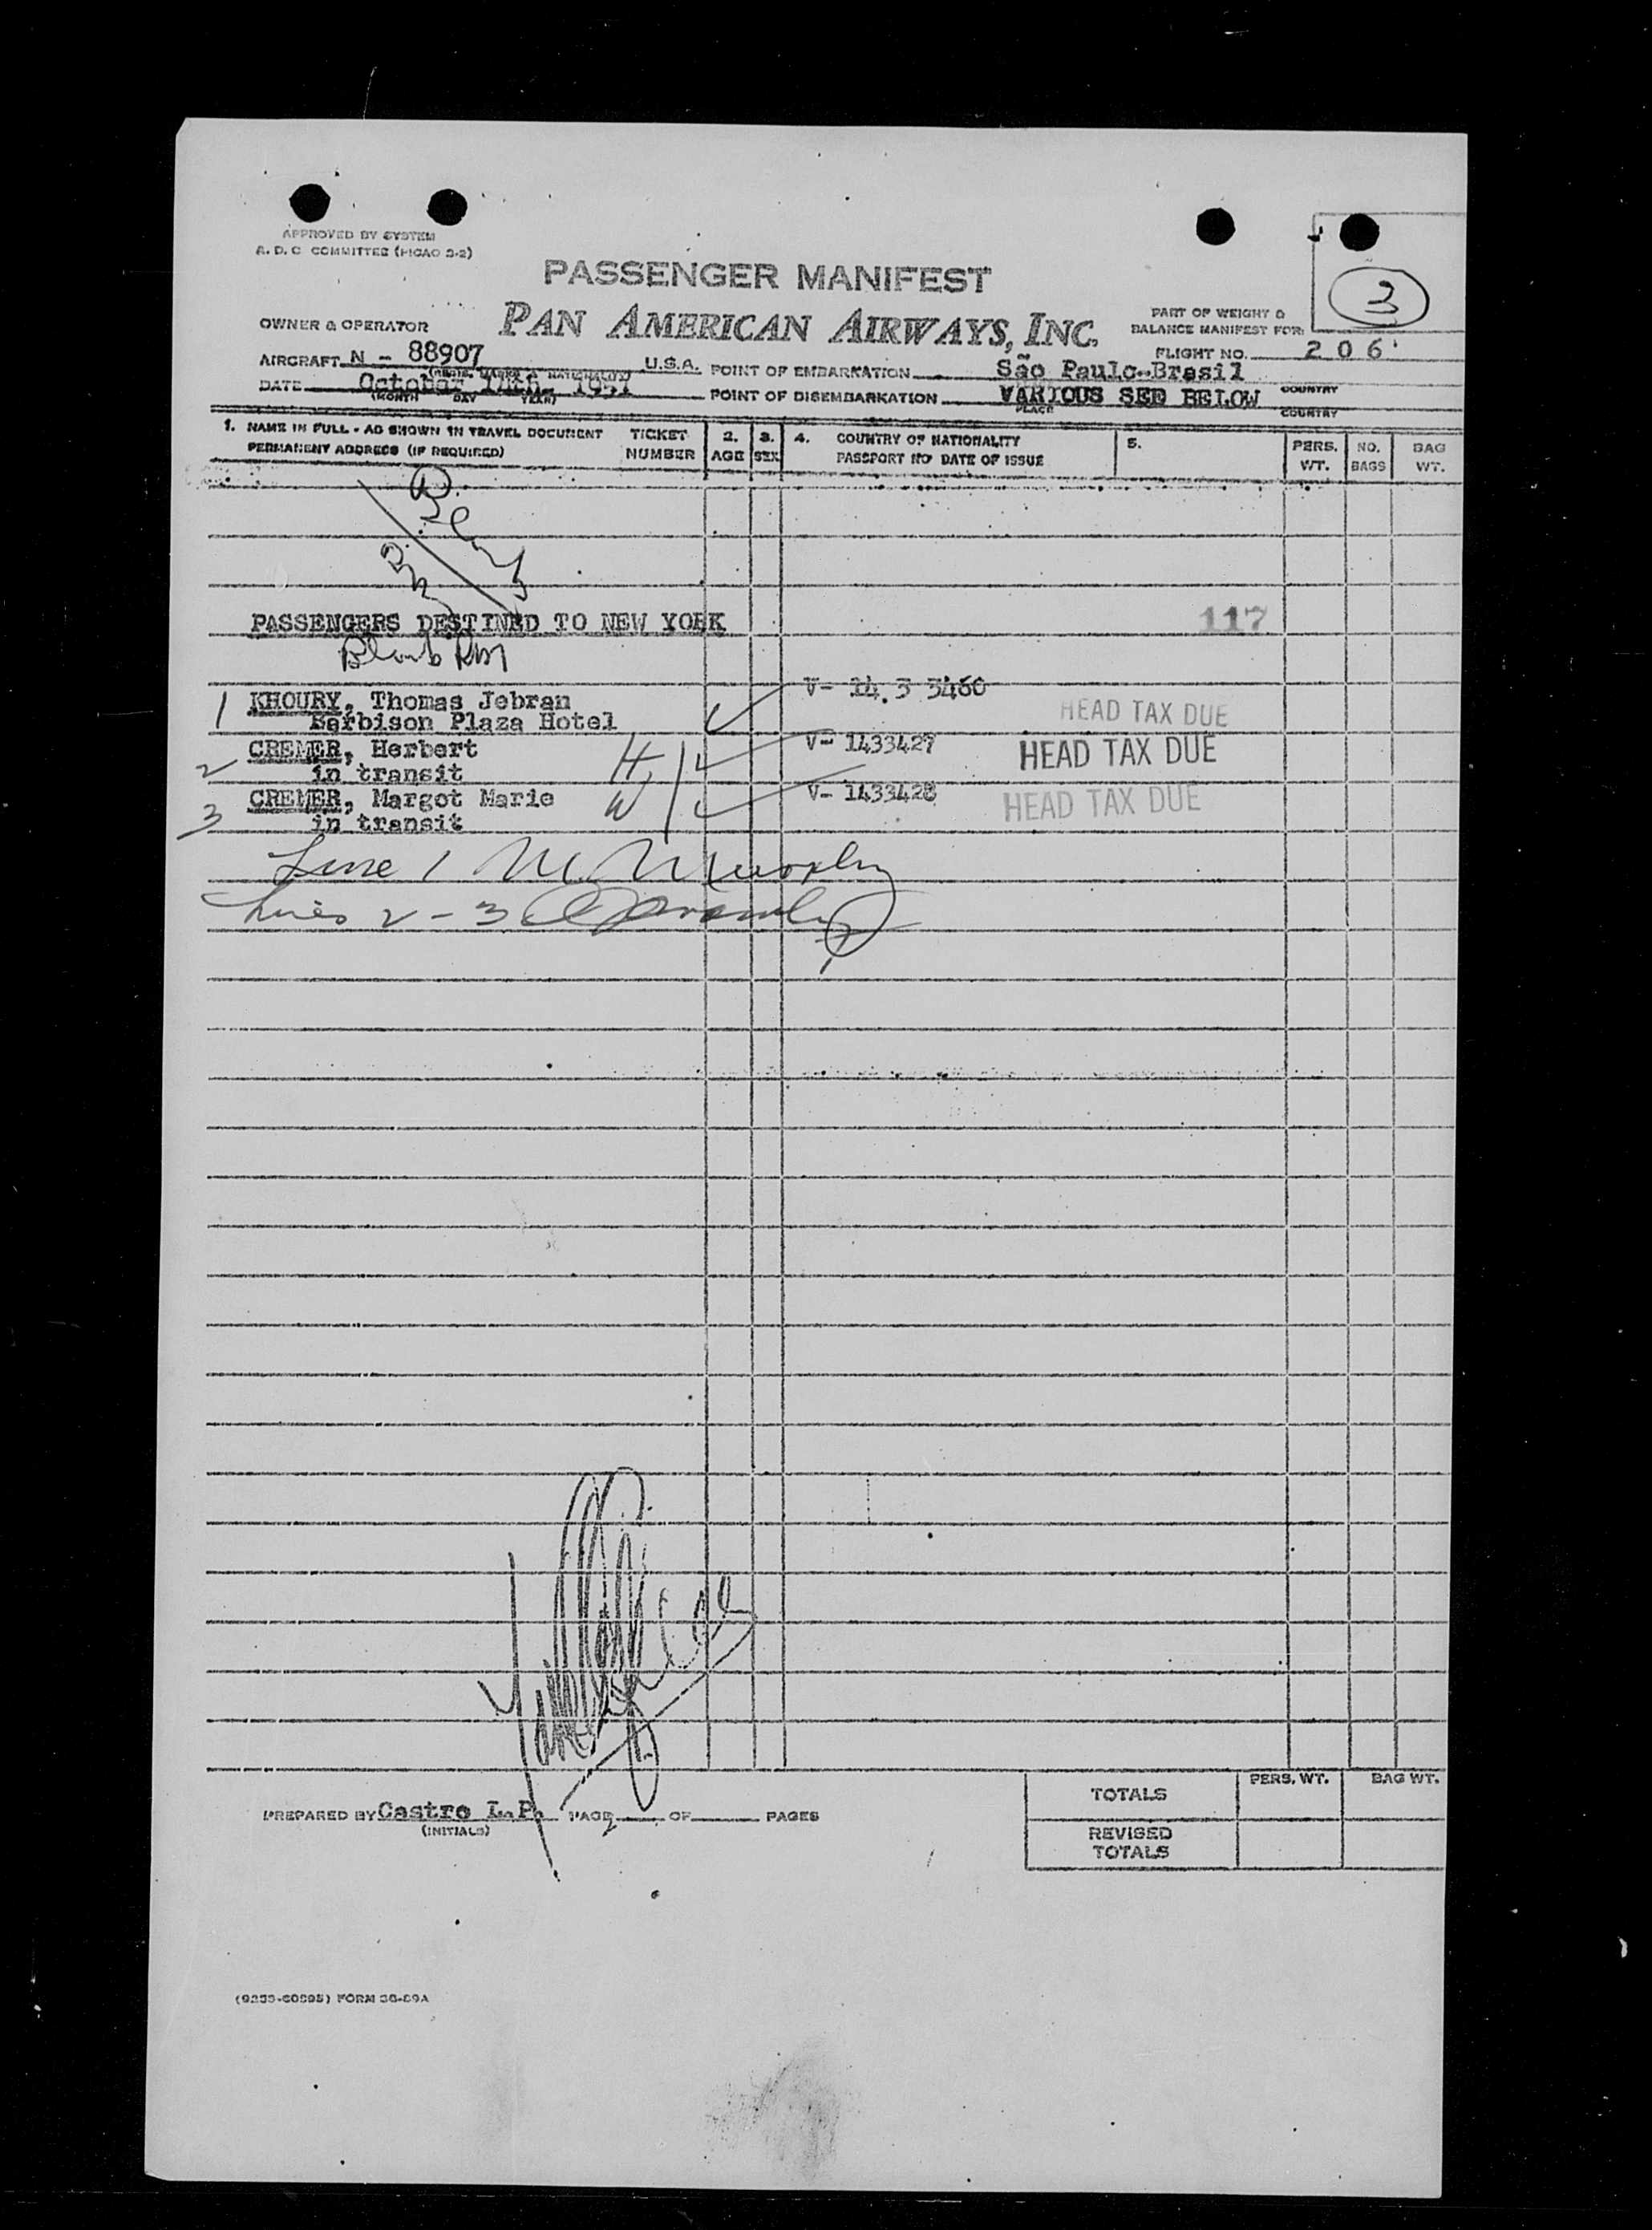 APPROVED BY SYSTEM
A. D. C COMMITTEE (PICAO 3-2)
PASSENGER MANIFEST
3
OWNER & OPERATOR
PAN AMERICAN AIRWAYS, INC.
PART OF WEIGHT &
BALANCE MANIFEST FOR:
AIRCRAFT N - 88907 U.S.A.
FLIGHT NO. 206
POINT OF EMBARKATION São Paulo-Brasil COUNTRY
DATE October 14th, 1951
(MONTH DAY YEAR)
POINT OF DISEMBARKATION VARIOUS SEE BELOW
PLACE COUNTRY
1. NAME IN FULL - AS SHOWN IN TRAVEL DOCUMENT TICKET 2. 3. 4. COUNTRY OF NATIONALITY 5. PERS. NO. BAG
PERMANENT ADDRESS (IF REQUIRED) NUMBER AGE SEX PASSPORT NO DATE OF ISSUE WT. BAGS WT.
PASSENGERS DESTINED TO NEW YORK 117
1 KHOURY, Thomas Jebran V- 14.3 5460 HEAD TAX DUE
Barbison Plaza Hotel
2 CREMER, Herbert H V- 1433427 HEAD TAX DUE
in transit
3 CREMER, Margot Marie W V- 1433428 HEAD TAX DUE
in transit
Line 1 M. Murphy
Lines 2-3
PREPARED BY Castro L.P. PAGE 2 OF PAGES
(INITIALS)
TOTALS PERS. WT. BAG WT.
REVISED
TOTALS